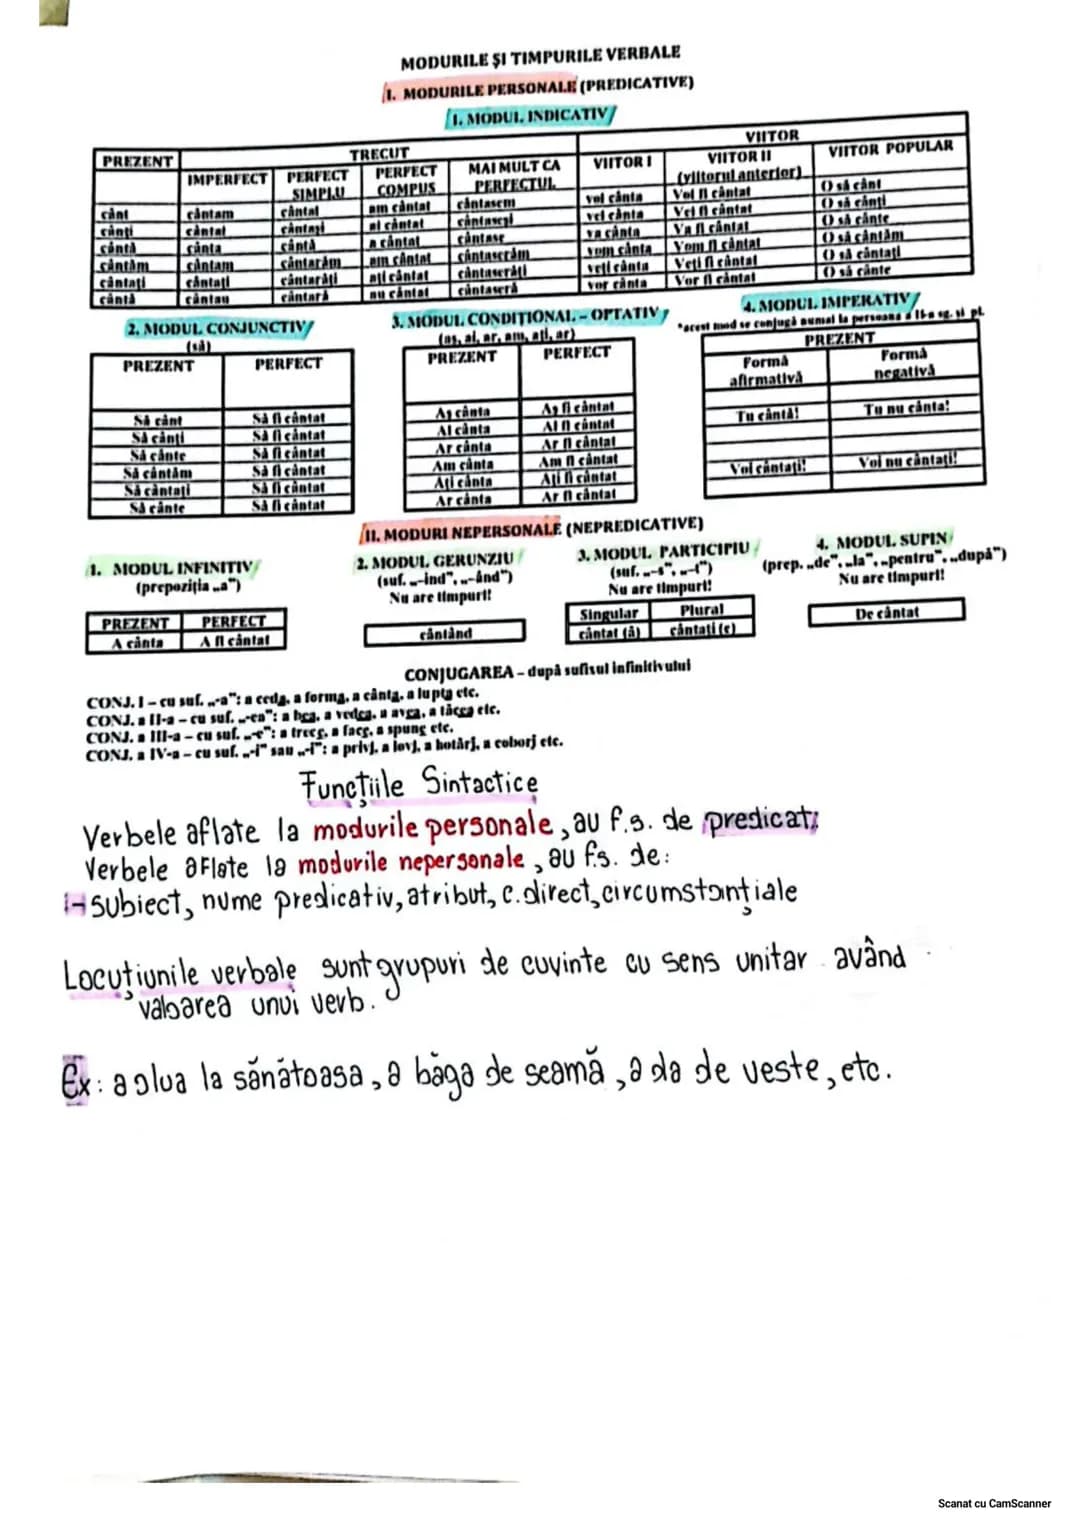 MODURILE ȘI TIMPURILE VERBALE
I. MODURILE PERSONALE (PREDICATIVE)
1. MODUL INDICATIV
PREZENT TRECUT VIITOR
IMPERFECT PERFECT SIMPLU PERFECT COMPUS MAI MULT CA PERFECTUL VIITOR I VIITOR II (viitorul anterior) VIITOR POPULAR
cânt cântam cântai am cântat cântasem voi cânta Voi fi cântat O să cânt
cânți cântai cântași ai cântat cântaseși vei cânta Vei fi cântat O să cânți
cântă cânta cântă a cântat cântase va cânta Va fi cântat O să cânte
cântăm cântam cântarăm am cântat cântaserăm vom cânta Vom fi cântat O să cântăm
cântați cântați cântarăți ați cântat cântaserăți veți cânta Veți fi cântat O să cântați
cântă cântau cântară au cântat cântaseră vor cânta Vor fi cântat O să cânte
2. MODUL CONJUNCTIV
(să)
PREZENT PERFECT
Să cânt Să fi cântat
Să cânți Să fi cântat
Să cânte Să fi cântat
Să cântăm Să fi cântat
Să cântați Să fi cântat
Să cânte Să fi cântat
3. MODUL CONDIȚIONAL – OPTATIV
(aș, ai, ar, am, ați, ar)
PREZENT PERFECT
Aș cânta Aș fi cântat
Ai cânta Ai fi cântat
Ar cânta Ar fi cântat
Am cânta Am fi cântat
Ați cânta Ați fi cântat
Ar cânta Ar fi cântat
4. MODUL IMPERATIV
*acest mod se conjugă numai la persoana a II-a sg. și pl.
PREZENT
Formă afirmativă Formă negativă
Tu cântă! Tu nu cânta!
Voi cântați! Voi nu cântați!
II. MODURI NEPERSONALE (NEPREDICATIVE)
1. MODUL INFINITIV
(prepoziția „a")
PREZENT PERFECT
A cânta A fi cântat
2. MODUL GERUNZIU
(suf. „-ind", „-ând")
Nu are timpuri!
cântând
3. MODUL PARTICIPIU
(suf. „-s", „-t")
Nu are timpuri!
Singular Plural
cântat (ă) cântați (e)
4. MODUL SUPIN
(prep. „de", „la", „pentru", „după")
Nu are timpuri!
De cântat
CONJUGAREA – după sufixul infinitivului
CONJ. I – cu suf. „-a": a ceda, a forma, a cânta, a lupta etc.
CONJ. a II-a – cu suf. „-ea": a bea, a vedea, a avea, a tăcea etc.
CONJ. a III-a – cu suf. „-e": a trece, a face, a spune etc.
CONJ. a IV-a – cu suf. „-i" sau „-î": a privi, a lovi, a hotărî, a coborî etc.
Funcțiile Sintactice
Verbele aflate la modurile personale, au f.s. de predicat;
Verbele aflate la modurile nepersonale, au f.s. de:
- subiect, nume predicativ, atribut, c.direct, circumstanțiale
Locuțiunile verbale sunt grupuri de cuvinte cu sens unitar având
valoarea unui verb.
Ex: a o lua la sănătoasa, a băga de seamă, a da de veste, etc.
Scanat cu CamScanner